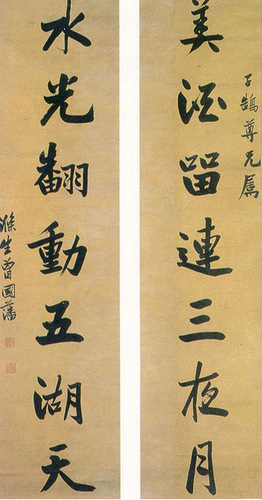 美酒留連三夜月
子鵠尊兄屬
水光翻動五湖天
滌生曾國藩